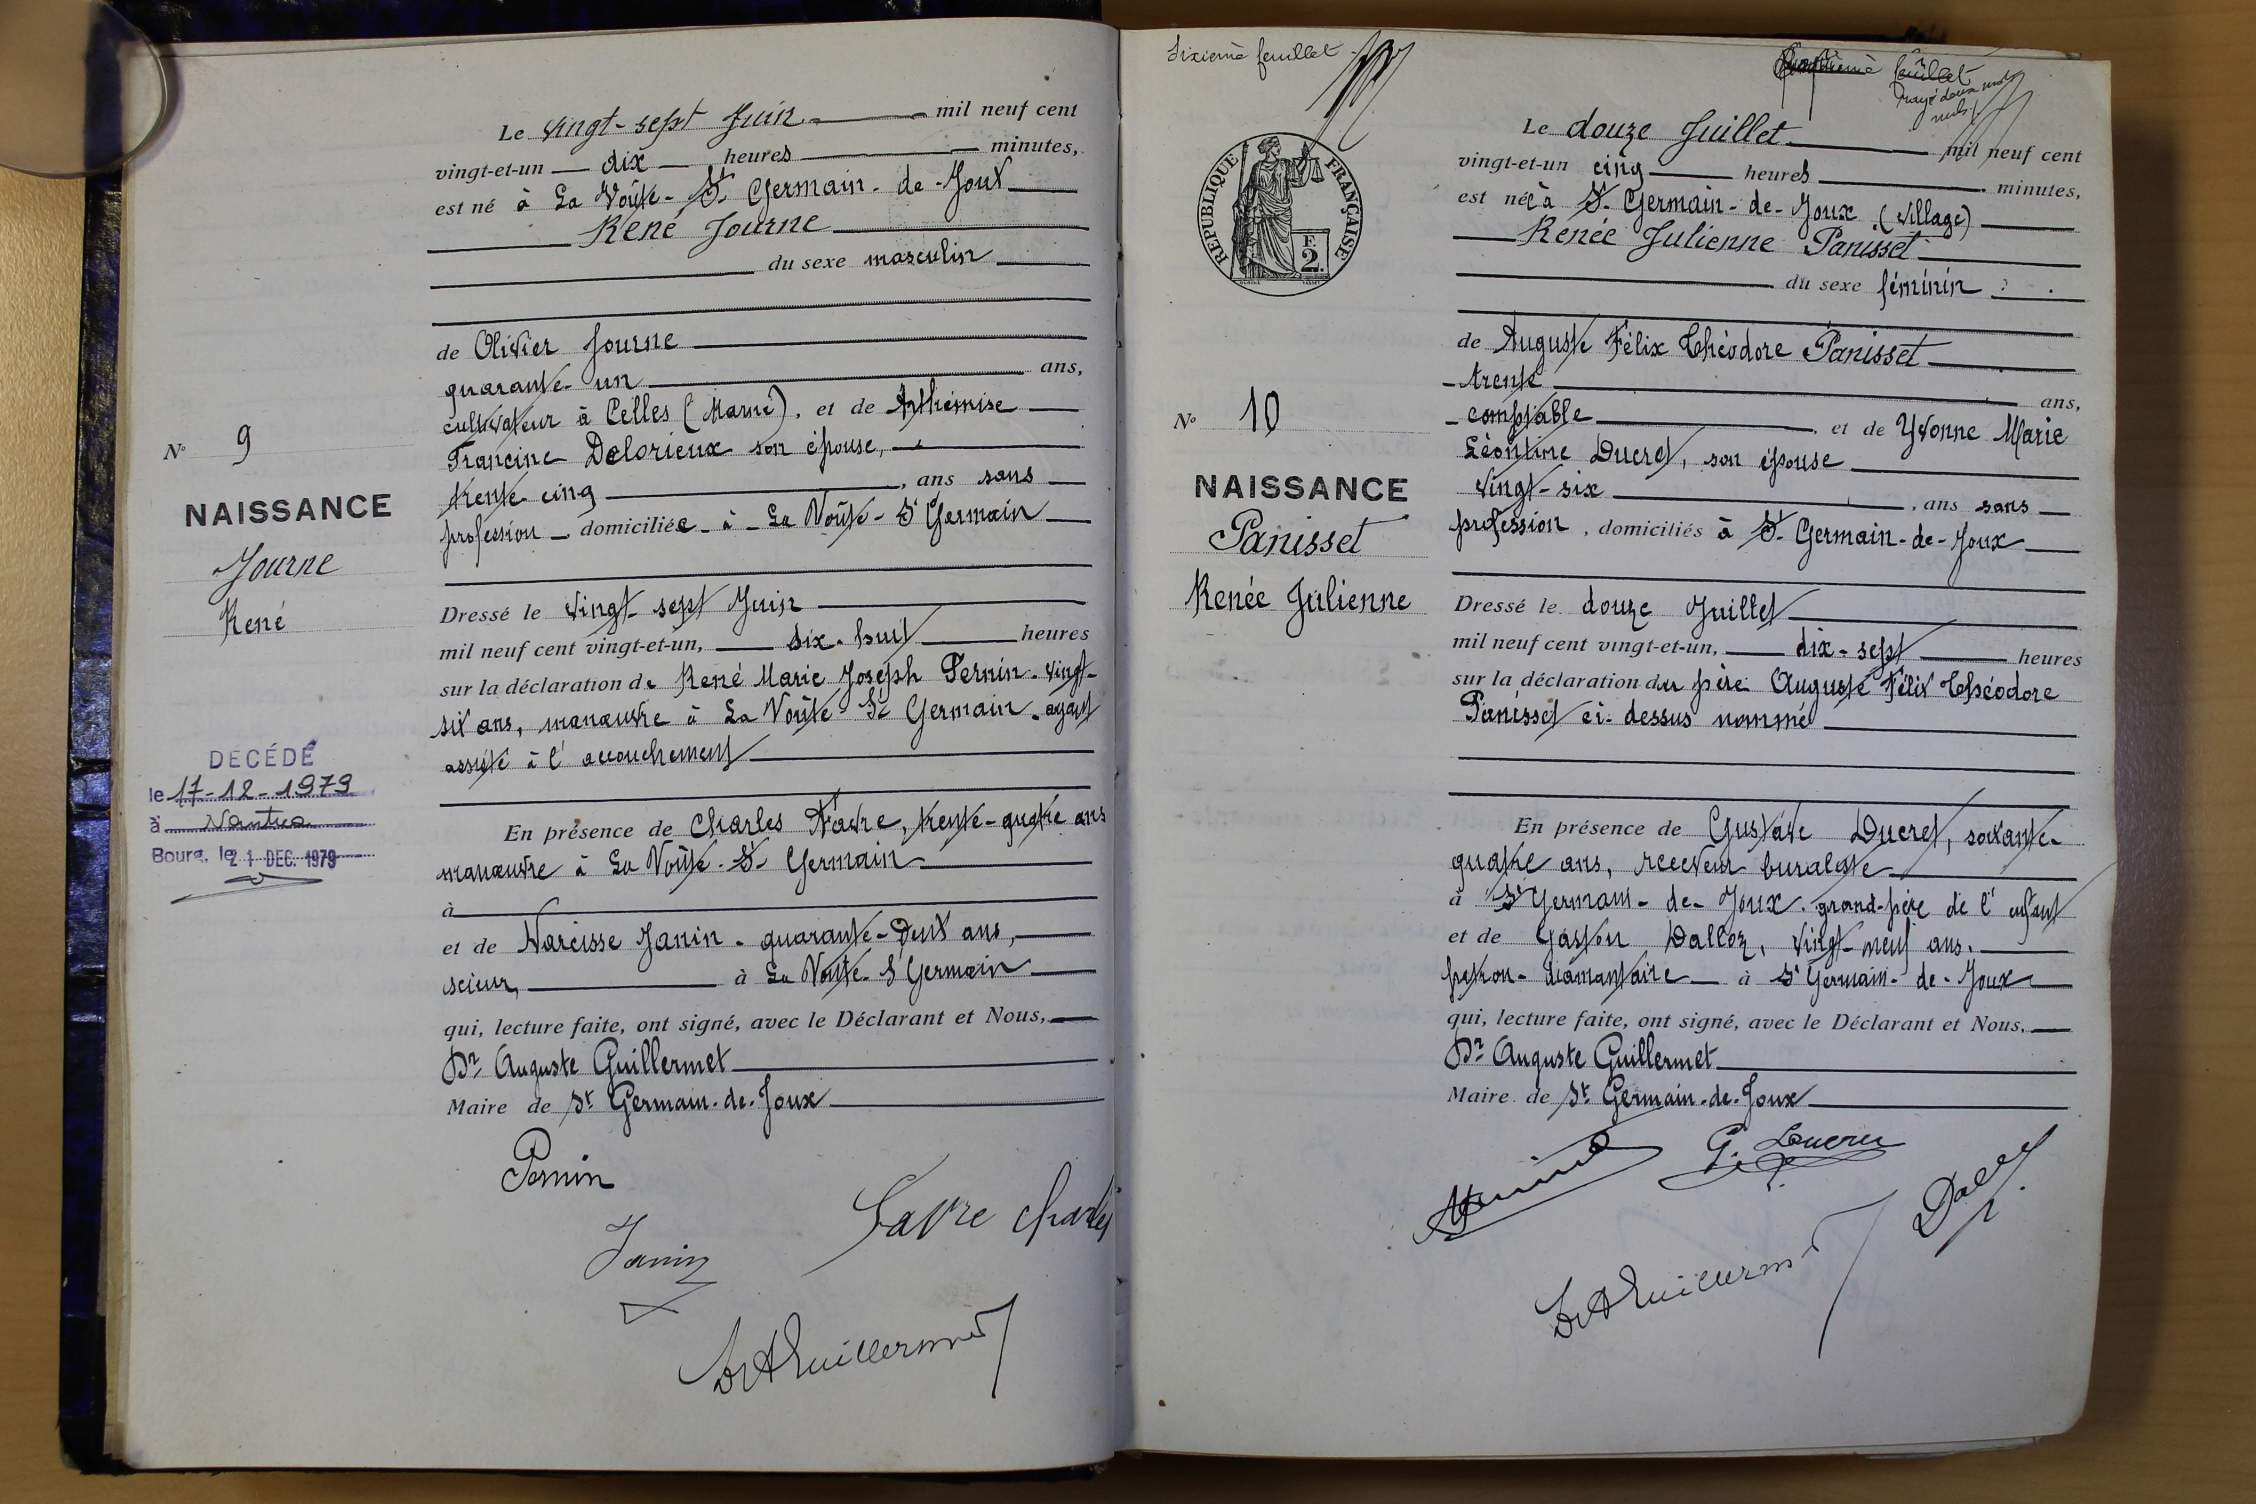 Le vingt-sept Juin mil neuf cent
vingt-et-un dix heures minutes,
est né à La Voûte-St Germain-de-Joux
René Journe
du sexe masculin
de Olivier Journe
quarante-un ans,
cultivateur à Celles (Marne), et de Arthémise
Francine Delorieux son épouse,
trente cinq , ans sans
profession domiciliée à La Voûte-St Germain
N° 9
NAISSANCE
Journe
René
Dressé le vingt-sept Juin
mil neuf cent vingt-et-un, dix-huit heures
sur la déclaration de René Marie Joseph Pernin-vingt-
six ans, manœuvre à La Voûte St Germain-ayant
assisté à l'accouchement
DÉCÉDÉ
le 17-12-1979
à Nantua
Bourg, le 21 DEC. 1979
En présence de Charles Favre, trente-quatre ans
manœuvre à La Voûte-St Germain
à
et de Narcisse Janin-quarante-deux ans,
scieur, à La Voûte-St Germain
qui, lecture faite, ont signé, avec le Déclarant et Nous,
Dr Auguste Guillermet
Maire de St Germain-de-Joux
Pernin
Favre Charles
Janin
Dr A Guillermet
Sixième feuillet
feuillet
Rayé deux mots
nuls
REPUBLIQUE FRANÇAISE
E
2.
Le douze Juillet mil neuf cent
vingt-et-un cinq heures minutes,
est née à St Germain-de-Joux (village)
Renée Julienne Panisset
du sexe féminin
de Auguste Félix Théodore Panisset
trente ans,
comptable , et de Yvonne Marie
Léontine Ducret, son épouse
vingt-six , ans sans
profession , domiciliés à St Germain-de-Joux
N° 10
NAISSANCE
Panisset
Renée Julienne
Dressé le douze Juillet
mil neuf cent vingt-et-un, dix-sept heures
sur la déclaration du père Auguste Félix Théodore
Panisset ci-dessus nommé
En présence de Gustave Ducret, soixante-
quatre ans, receveur buraliste
à St Germain-de-Joux-grand-père de l'enfant
et de Gaston Dalloz, vingt-neuf ans,
patron-diamantaire à St Germain-de-Joux
qui, lecture faite, ont signé, avec le Déclarant et Nous,
Dr Auguste Guillermet
Maire de St Germain-de-Joux
G. Ducret
Dr A Guillermet